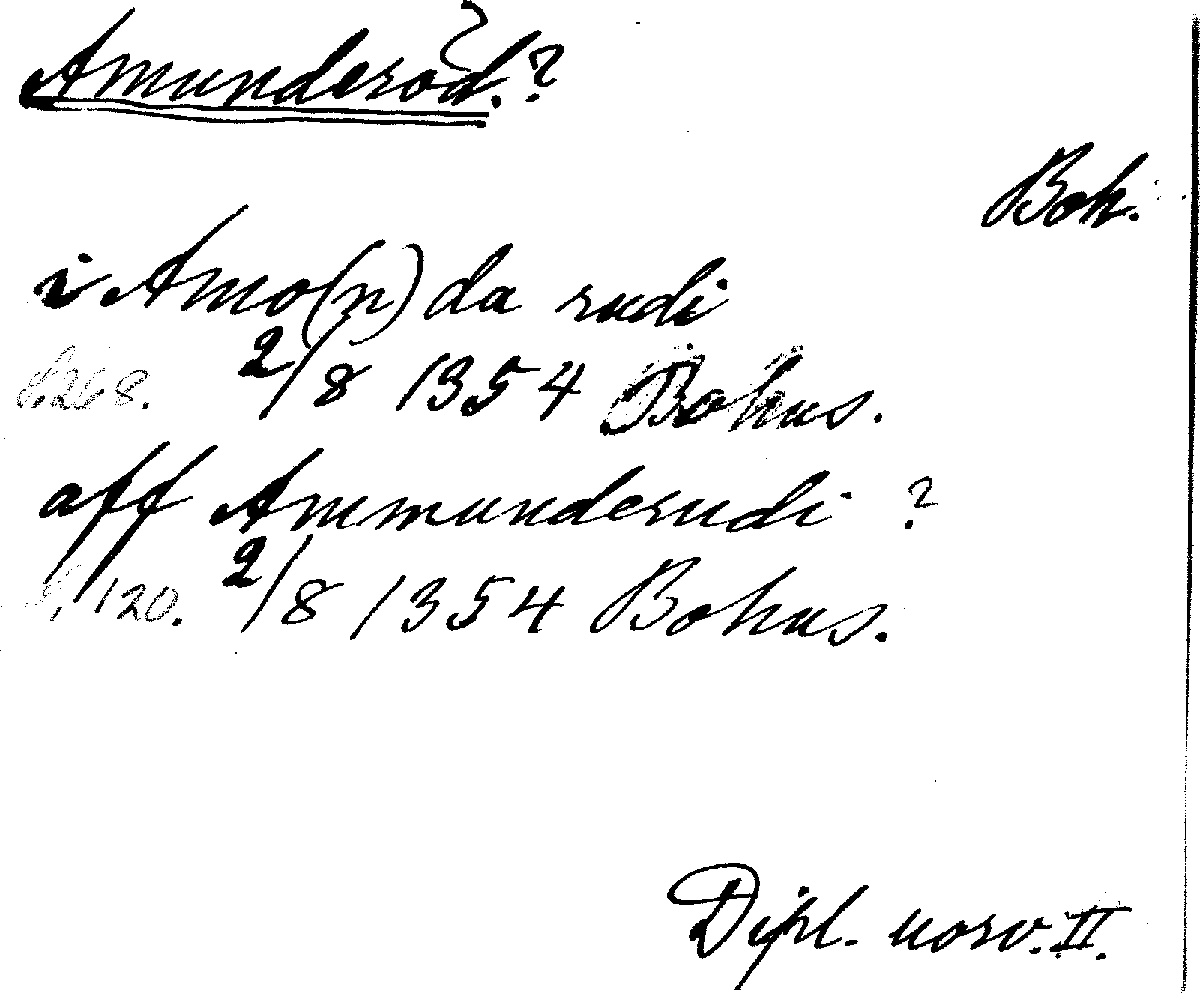 Amunderöd.?
Boh.
i Amo(n)da rudi
S.268. 2/8 1354 Bohus.
aff Ammunderudi ?
S. 120. 2/8 1354 Bohus.
Dipl. norv. II.